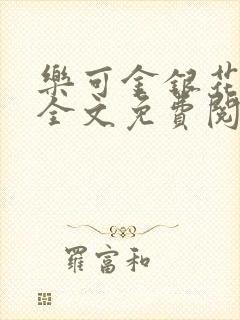 樂可金銀花
全文免費閱
羅富和